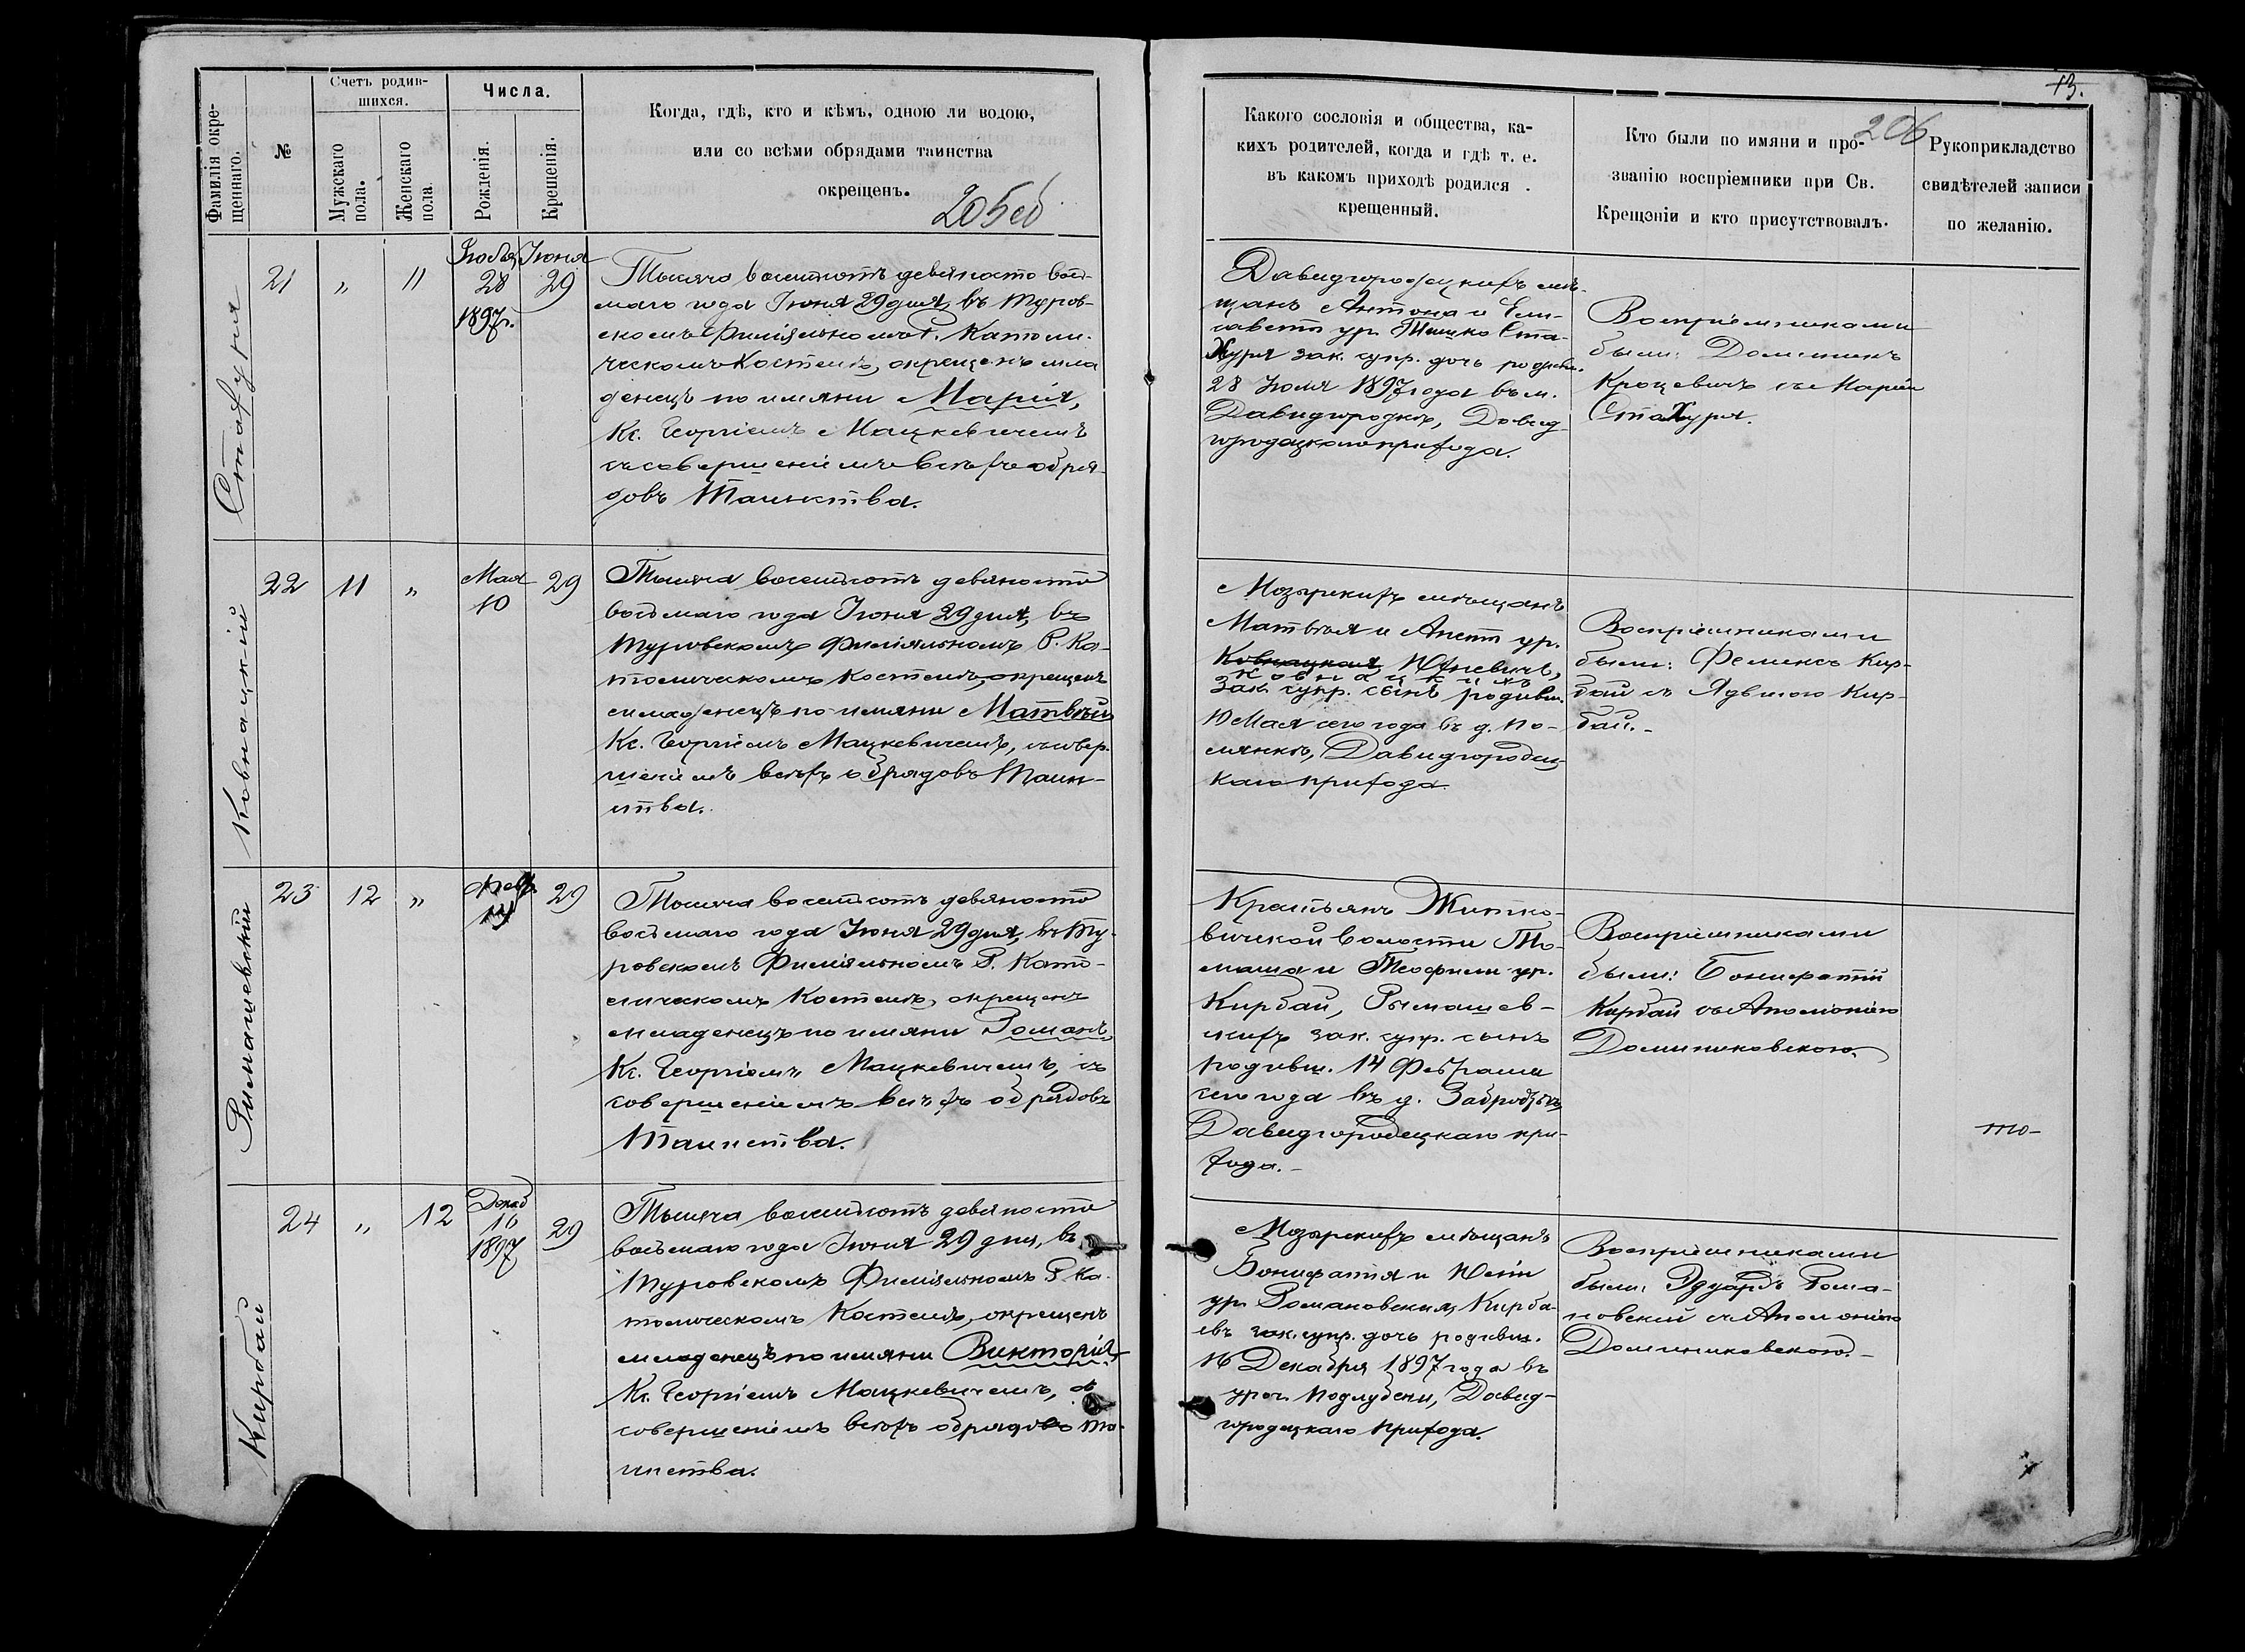 Фамилія окре-
щеннаго.
№
Счетъ родив-
шихся.
Мужскаго
пола.
Женскаго
пола.
Числа.
Рожденія.
Крещенія.
Когда, гдѣ, кто и кѣмъ, одною ли водою,
или со всѣми обрядами таинства
окрещенъ.
205об
Стахуря
21
"
11
28
1897г.
Іюня
29
Тысяча восемьсотъ девяносто вось-
маго года Іюня 29 дня, въ Туров-
скомъ Филіяльномъ Р. Католи-
ческомъ Костелѣ, окрещенъ мла
денецъ по имяни Марія,
Кс. Георгіемъ Мацкевичемъ
съ совершеніемъ всѣхъ обря-
довъ Таинства.
Ковнацкій
22
11
"
Мая
10
29
Тысяча восемьсотъ девяносто
восьмаго года Іюня 29 дня, въ
Туровскомъ Филіяльномъ Р. Ка-
толическомъ Костелѣ, окрещенъ
младенецъ по имяни Матвѣй
Кс. Георгіемъ Мацкевичемъ, съ совер-
шеніемъ всѣхъ обрядовъ Таин-
ства.
Рымашевскій
23
12
"
Февр.
14
29
Тысяча восемьсотъ девяносто
восьмаго года Іюня 29 дня, въ Ту-
ровскомъ Филіяльномъ Р. Като-
лическомъ Костелѣ, окрещенъ
младенецъ по имяни Романъ,
Кс. Георгіемъ Мацкевичемъ, съ
совершеніемъ всѣхъ обрядовъ
Таинства.
Кирбай
24
"
12
Декаб
16
1897
29
Тысяча восемьсотъ девяносто
восьмаго года Іюня 29 дня, въ
Туровскомъ Филіяльномъ Р. Ка-
толическомъ Костелѣ, окрещенъ
младенецъ по имяни Викторія,
Кс. Георгіемъ Мацкевичемъ, съ
совершеніемъ всѣхъ обрядовъ Та-
инства.
13.
206
Какого сословія и общества, ка-
кихъ родителей, когда и гдѣ т. е.
въ какомъ приходѣ родился
крещенный.
Кто были по имяни и про-
званію воспріемники при Св.
Крещеніи и кто присутствовалъ.
Рукоприкладство
свидѣтелей записи
по желанію.
Давидгородецкихъ мѣ-
щанъ Антона и Ели-
саветы ур. Тышко Ста-
хуря зак. супр. дочь родивш.
28 1897 года въ м.
Давидгородкѣ, Давид-
городецкаго прихода.
Воспріемниками
были: Доминикъ
Кроцевичъ съ Марія
Стахуря.
Мозырскихъ мѣщанъ
Матвѣя и ур.
Ковнацкая
Ковнацкихъ
зак. супр. сынъ родивш.
10 Мая сего года въ д. По-
лянкѣ, Давидгородец-
каго прихода.
Воспріемниками
были: Феликсъ Кир-
бай съ Ядвигою Кир-
бай.-
Крестьянъ Житко-
вичской волости То-
маша и Теофили ур.
Кирбай, Рымашев-
скихъ зак. супр. сынъ
родивш. 14 Февраля
сего года въ д.
Давидгородецкаго при-
хода.-
Воспріемниками
были: Бонифатій
Кирбай съ Аполоніею
Доминиковскою.
то-
Мозырскихъ мѣщанъ
Бонифатія и
ур. Романовская, Кирба-
евъ зак. супр. дочь родивш.
16 Декабря 1897 года въ
уроч. Подлубени, Давид-
городецкаго прихода.
Воспріемниками
были: Эдуардъ Рома-
новскій съ Аполоніею
Доминиковскою.-